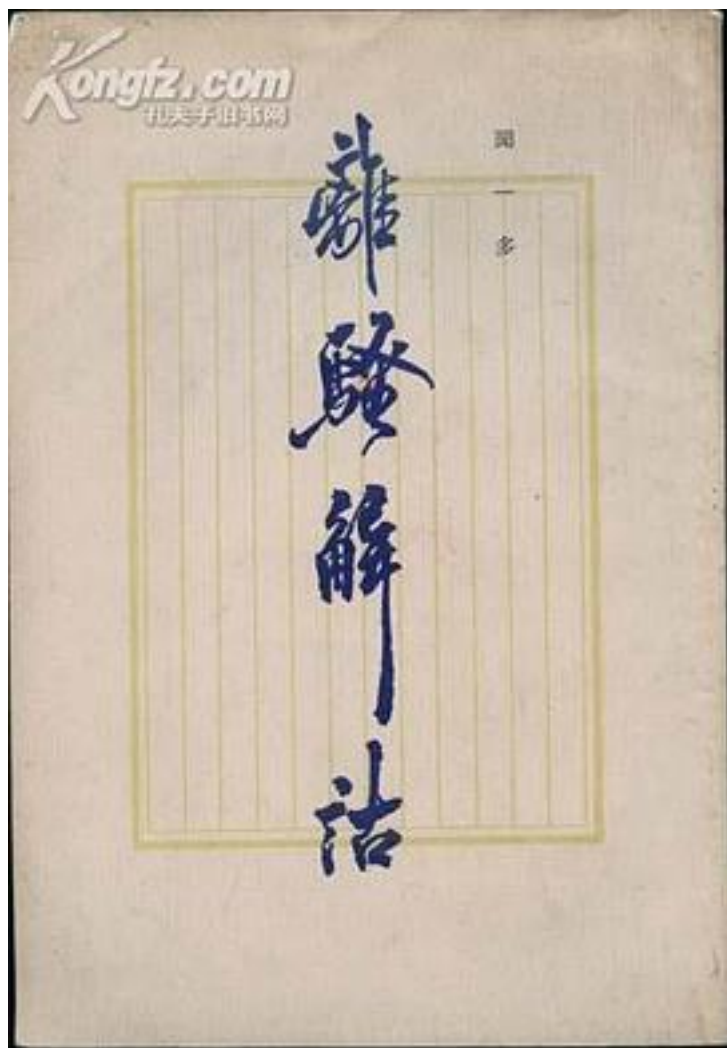 Kongfz.com
孔夫子旧书网
聞一多
離騷解詁